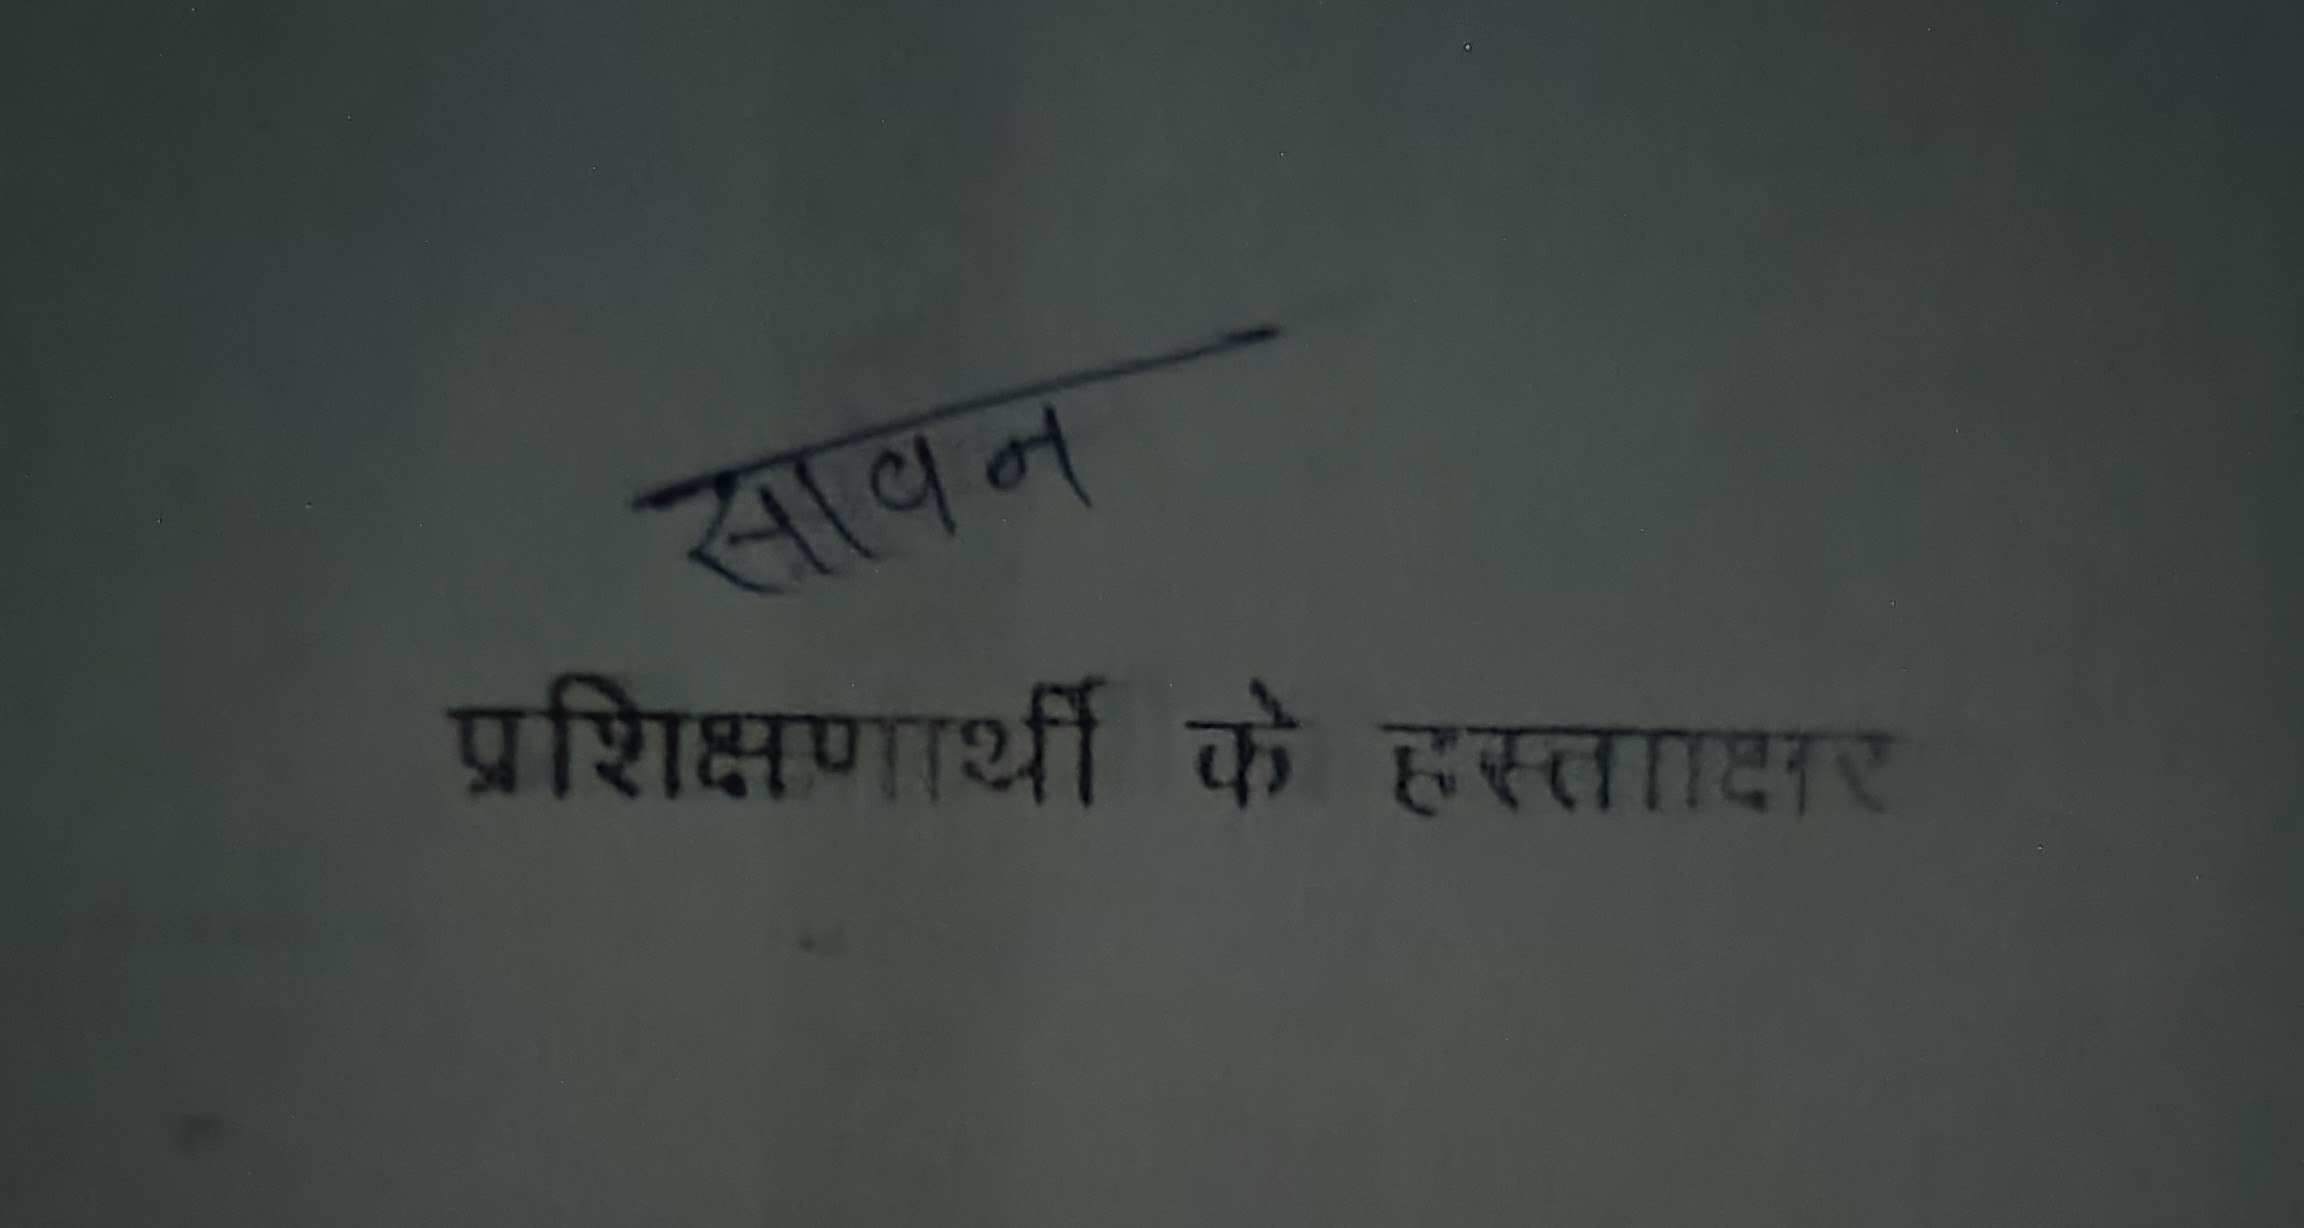 सावन
प्रशिक्षणार्थी के हस्तााक्षर